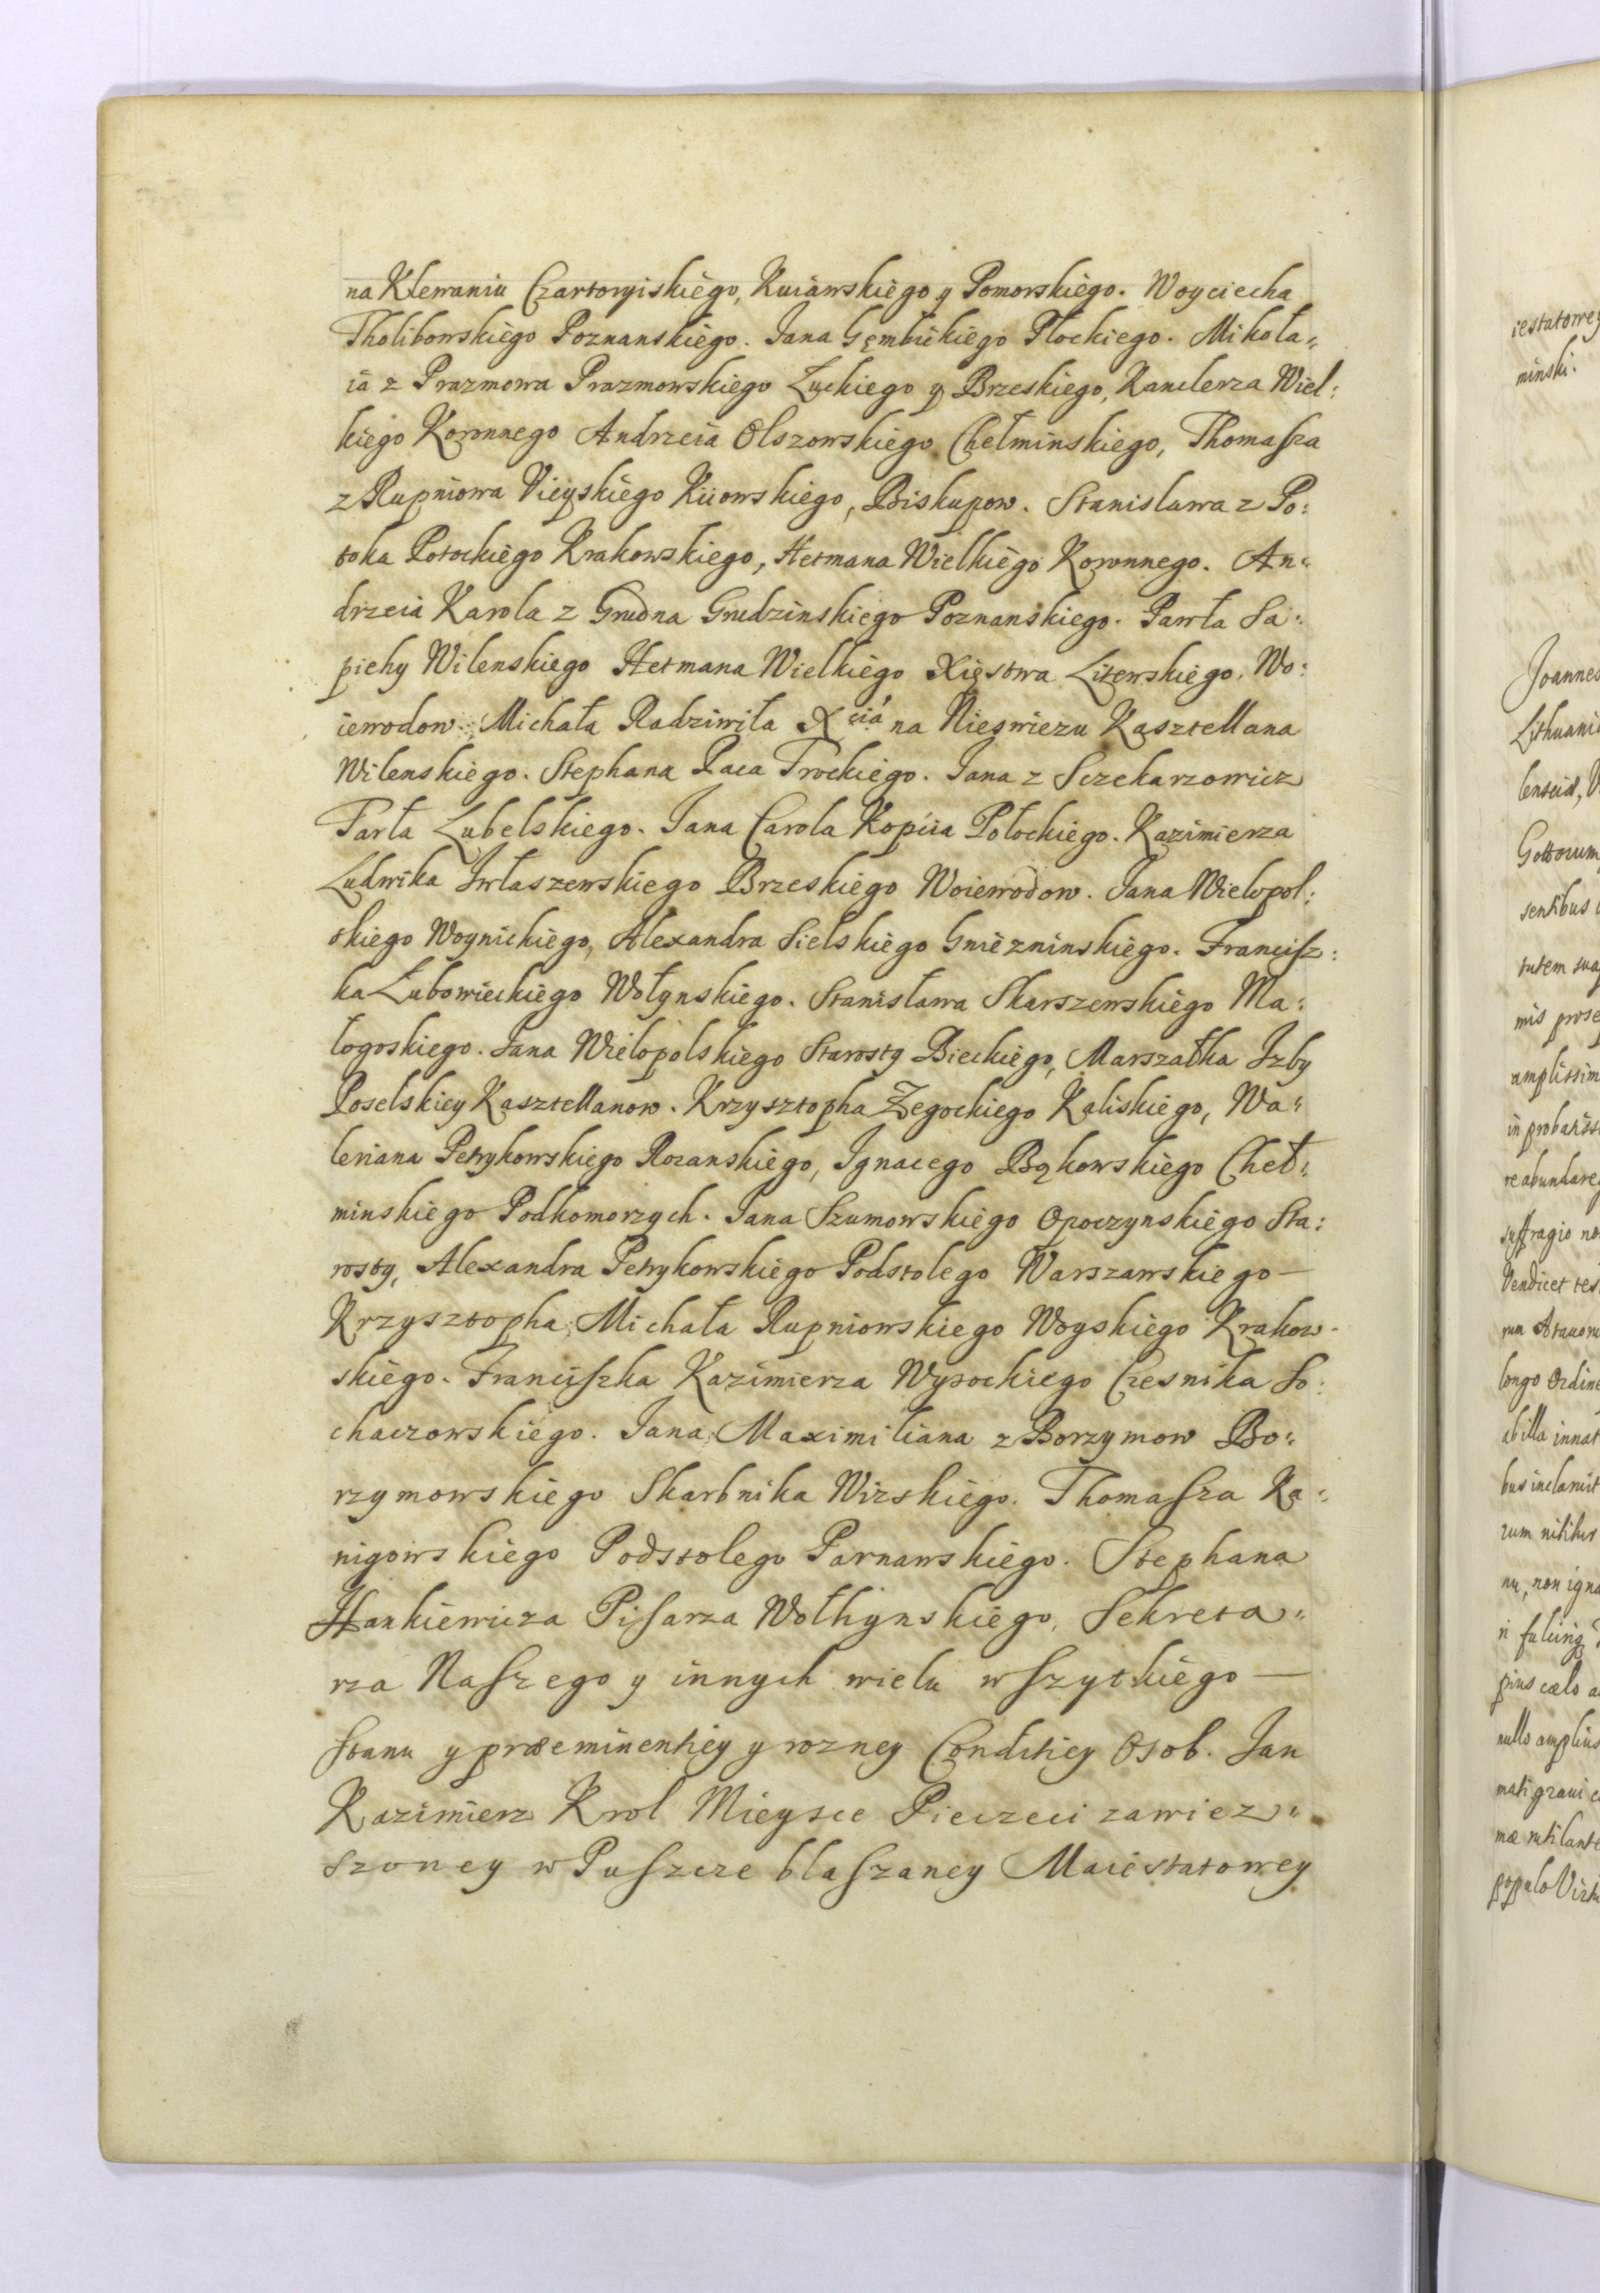 na Klewaniu Czartoryiskiego, Kuiawskiego y Pomorskiego. Woyciecha
Tholibowskiego Poznanskiego. Jana Gęmbickiego Płockiego. Mikoła„
ia z Prazmowa Prazmowskiego Łuckiego y Brzeskiego, Kanclerza Wiel:
kiego Koronnego Andrzeia Olszowskiego Chełminskiego, Thomasza
z Rupniowa Vieyskiego Kiiowskiego, Biskupow. Stanislawa z Po:
toka Potockiego Krakowskiego, Hetmana Wielkiego Koronnego. An„
drzeia Karola z Grudna Grudzinskiego Poznanskiego. Pawła Sa:
piehy Wilenskiego Hetmana Wielkiego Xięstwa Litewskiego, Wo:
iewodow. Michała Radziwiła Xcia na Nieswiezu Kasztellana
Wilenskiego. Stephana Paca Trockiego. Jana z Sczekarzowicz
Tarła Lubelskiego. Jana Carola Kopcia Połockiego. Kazimierza
Ludwika Jwłaszewskiego Brzeskiego Woiewodow. Jana Wielopol:
skiego Woynickiego, Alexandra Sielskiego Gniezninskiego. Francisz:
ka Lubowieckiego Wołynskiego. Stanisława Skarszewskiego Ma:
łogoskiego. Jana Wielopolskiego Starosty Bieckiego, Marszałka Jzby
Poselskiey Kasztellanow. Krzysztopha Zegockiego Kaliskiego, Wa„
leriana Petrykowskiego Rozanskiego, Jgnacego Bąkowskiego Cheł„
minskiego Podkomorzych. Jana Szumowskiego Opoczynskiego Sta:
rosty, Alexandra Petrykowskiego Podstolego Warszawskiego —
Krzysztopha Michała Rupniowskiego Woyskiego Krakow-
skiego. Franciszka Kazimierza Wysockiego Czesnika So:
chaczowskiego. Jana Maximiliana z Borzymow Bo„
rzymowskiego Skarbnika Wizskiego. Thomasza Ka„
nigowskiego Podstolego Parnawskiego. Stephana
Hankiewicza Pisarza Wołhynskiego, Sekreta„
rza Naszego y innych wielu wszytkiego —
stanu y præeminentiey y rozney Conditiey Osob. Jan
Kazimierz Krol Mieysce Pieczeci zawiez„
szoney w Puszcze blaszaney Maiestatowey
iestatowey
minski.
Joannes
Lithuani
sentibus
mis prose
amplissim
suffragio
Vendicet tes
longo Ordine
ab illa innat
zum nititur
nu, non igna
pius cælo
nullo amplius
mati graui
mæ rutilante
populo